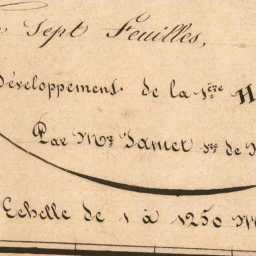 Sept Feuilles,
Développement de la 1ère H
Par Mr Jamet
Echelle de 1 à 1250